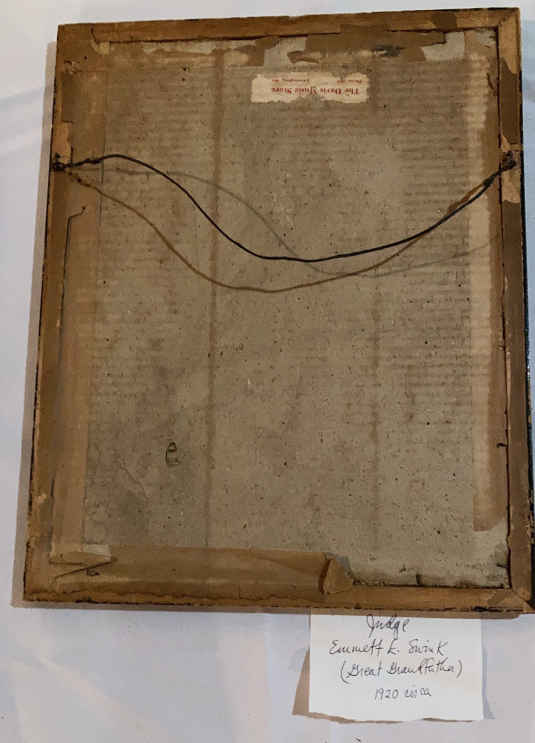 The Davis Music Store
e
Judge
Emmett L. Swink
(Great Grandfather)
1920 circa